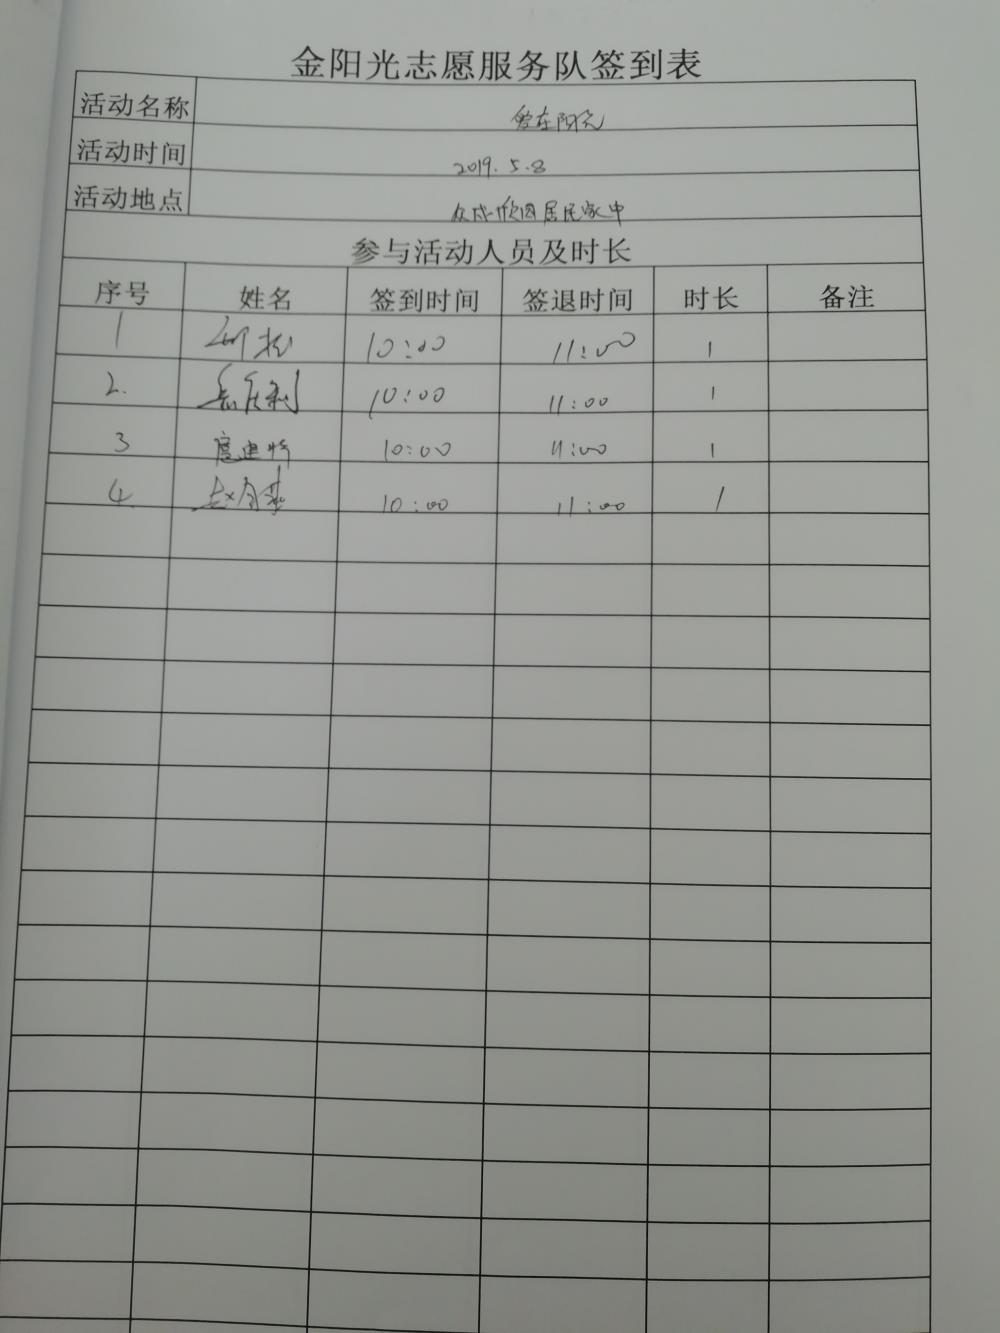 金阳光志愿服务队签到表
活动名称 爱在阳光
活动时间 2019.5.8
活动地点 众成欣园居民家中
参与活动人员及时长
序号 姓名 签到时间 签退时间 时长 备注
1 10:00 11:00 1
2. 10:00 11:00 1
3 10:00 11:00 1
4 10:00 11:00 1